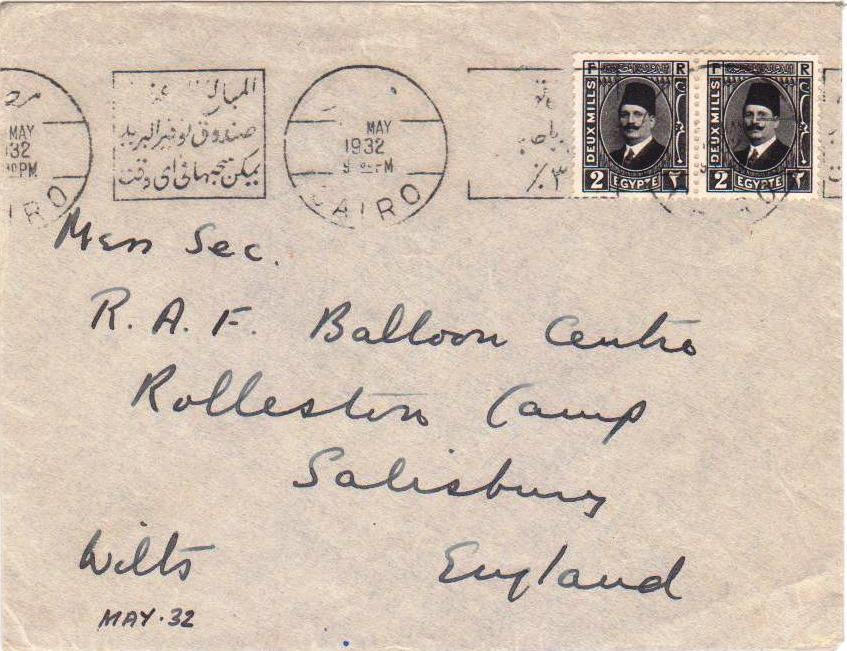 MAY
1932
9 PM
CAIRO
المبالغ
صندوق توفير البريد
يمكن سحبها في أي وقت
٣٪
F R
DEUX MILLS
2 EGYPTE ٢
F R
DEUX MILLS
2 EGYPTE ٢
Mess Sec.
R.A.F. Balloon Centre
Rolleston Camp
Salisbury
Wilts England
MAY·32